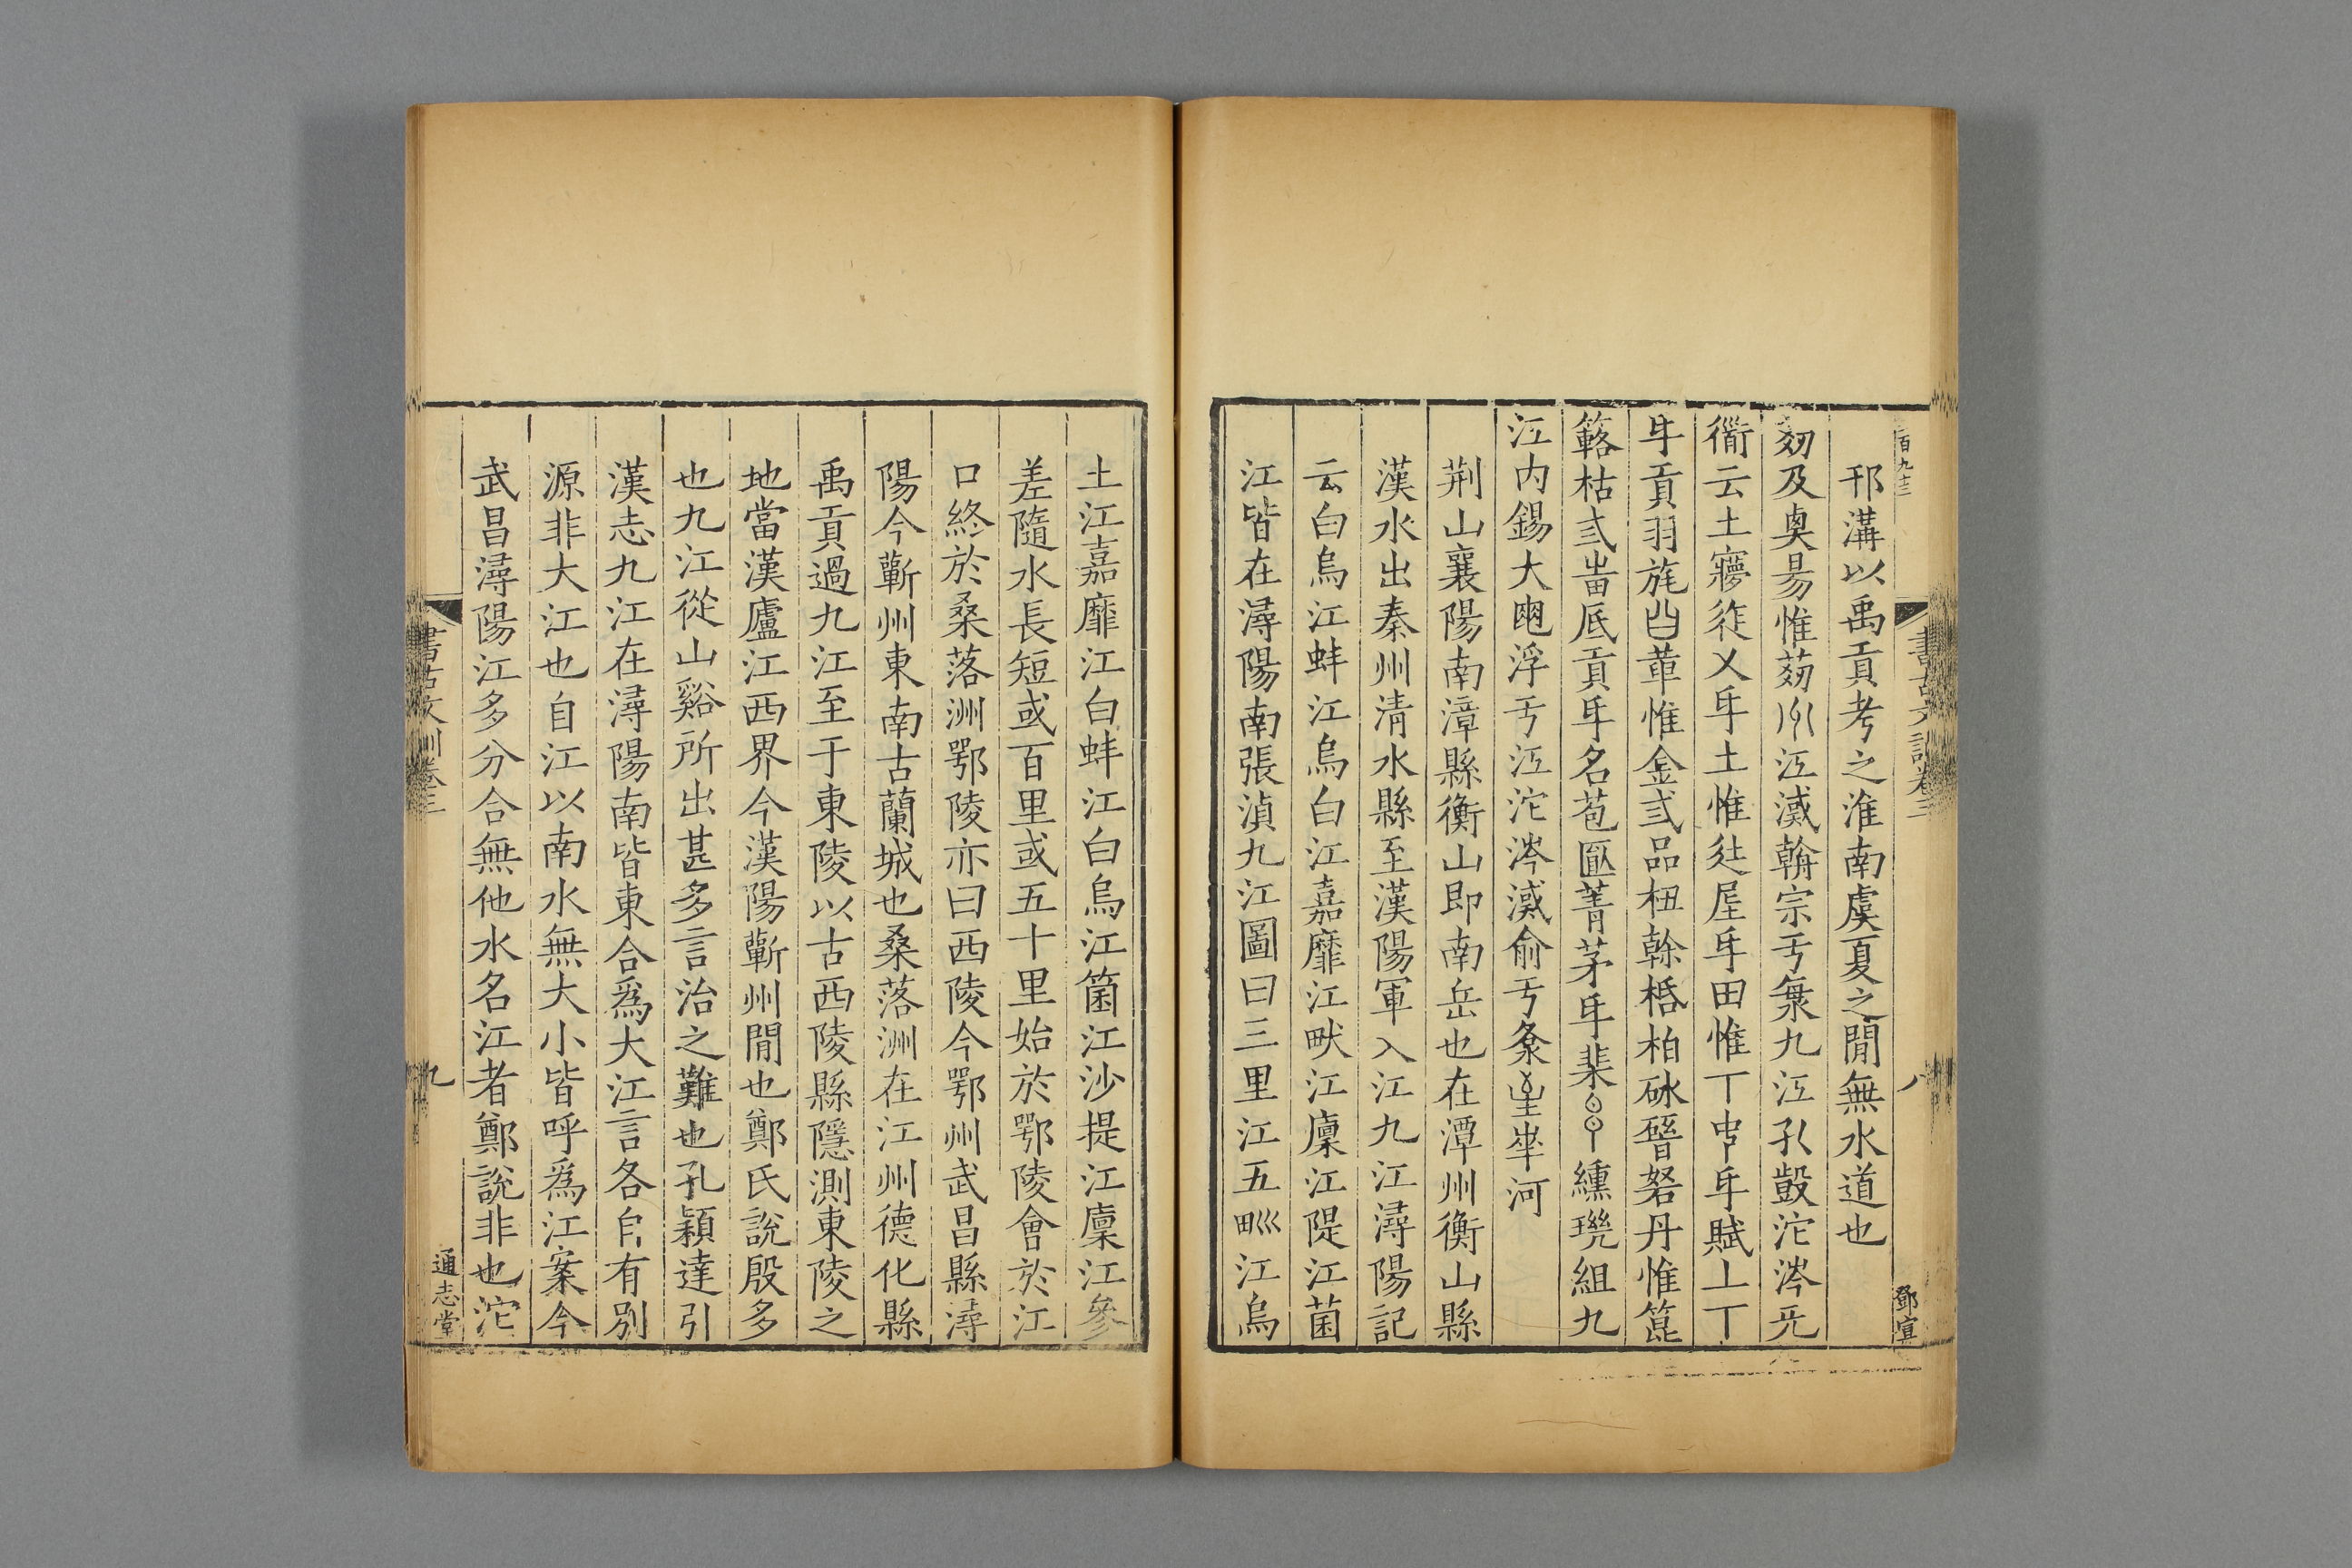 百九十三
書古文訓卷三
八
鄧宣
邗溝以禹貢考之淮南虞夏之閒無水道也
及奧昜惟𣲖江漢翰宗亏九江孔𣪞沱涔旡
云土㝱㣟乂𠂆土惟𡍮𡱂𠂆田惟丁中𠂆賦丄丁
𠂆貢羽旄齒革惟金弎品杻榦栝柏砅晉砮丹惟箟
簵枯弎畨底貢𠂆名苞匭菁茅𠂆棐纁璣組九
江內錫大黽浮亏江沱涔漢俞亏河
荆山襄陽南漳縣衡山即南岳也在潭州衡山縣
漢水出秦州清水縣至漢陽軍入江九江潯陽記
云白烏江蚌江烏白江嘉靡江畎江廩江隄江菌
江皆在潯陽南張湞九江圖曰三里江五畎江烏
土江嘉靡江白蚌江白烏江箘江沙提江廩江參
差隨水長短或百里或五十里始於鄂陵會於江
口終於桑落洲鄂陵亦曰西陵今鄂州武昌縣潯
陽今蘄州東南古蘭城也桑落洲在江州德化縣
禹貢過九江至于東陵以古西陵縣隱測東陵之
地當漢廬江西界今漢陽蘄州閒也鄭氏說殷多
也九江從山谿所出甚多言治之難也孔穎達引
漢志九江在潯陽南皆東合爲大江言各自有別
源非大江也自江以南水無大小皆呼爲江案今
武昌潯陽江多分合無他水名江者鄭說非也沱
書古文訓卷三
九
通志堂